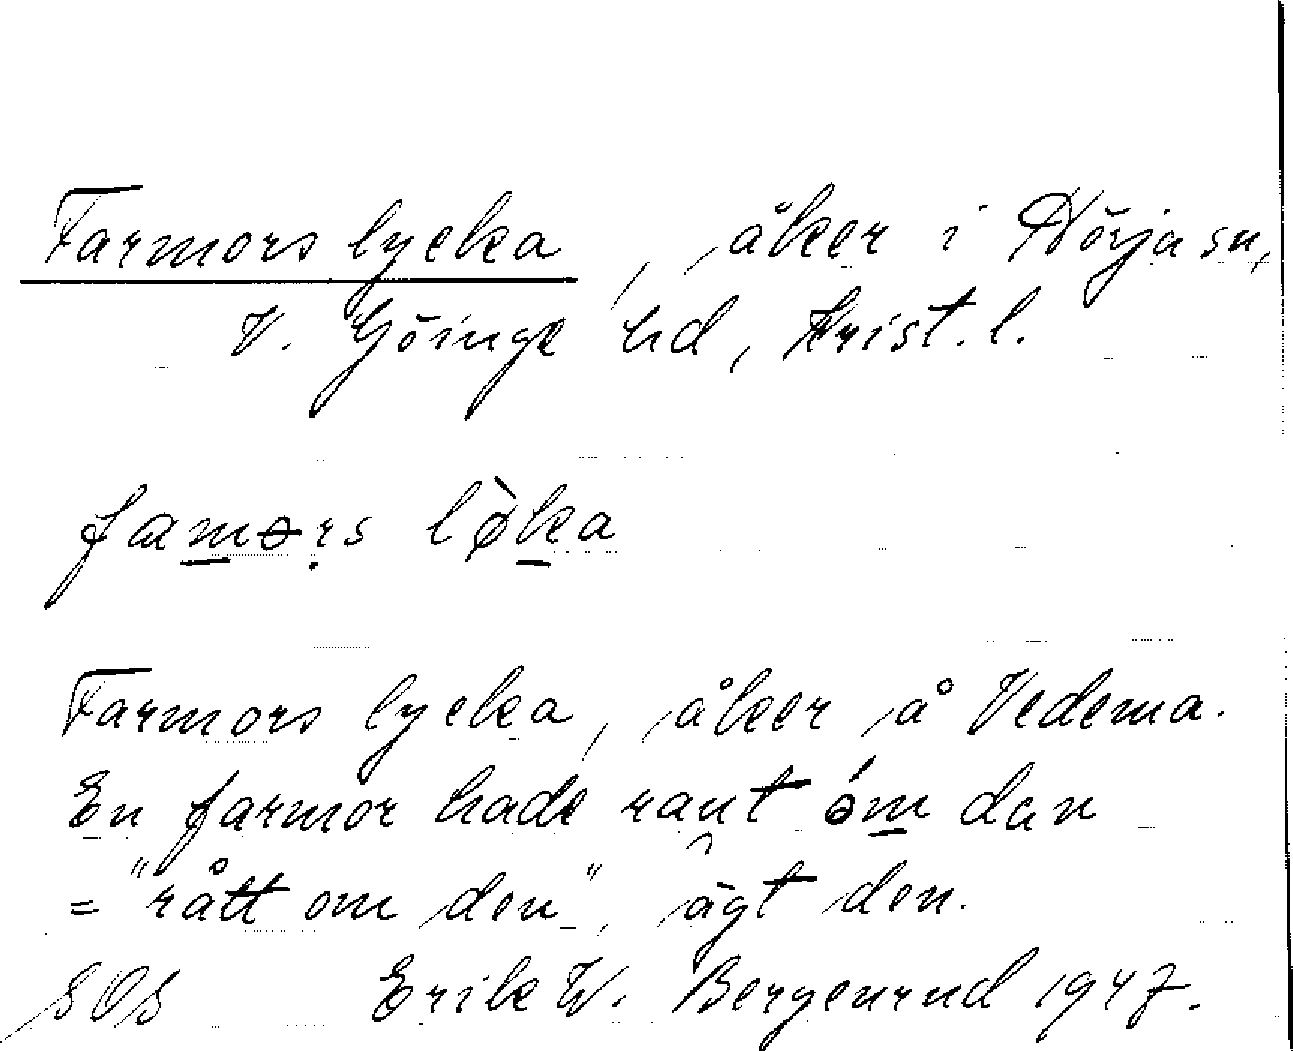 Farmors lycka, åker i Hörja sn,
V. Göinge hd, Krist. l.
famors lø̀ka
Farmors lycka, åker å Vedema.
En farmor hade raut óm dan
= "rått om den", ägt den.
SOS Erik W. Bergenrud 1947.